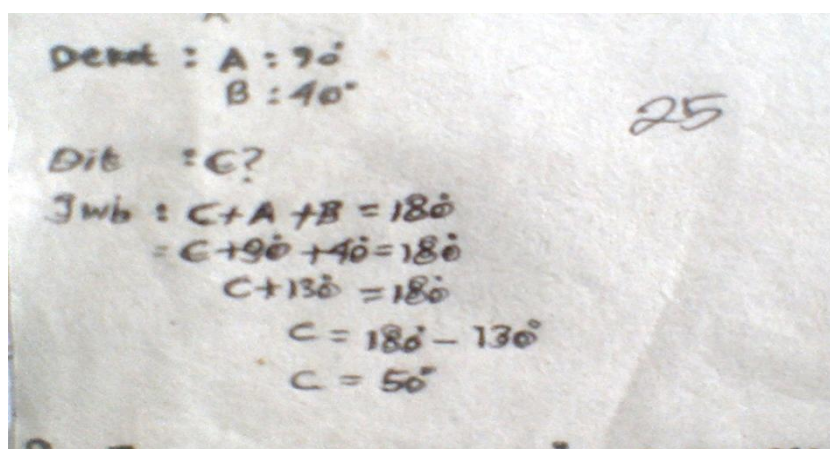 Diket : A : 90°
B : 40°
25
Dit : C?
Jwb : C + A + B = 180°
= C + 90° + 40° = 180°
C + 130° = 180°
C = 180° - 130°
C = 50°